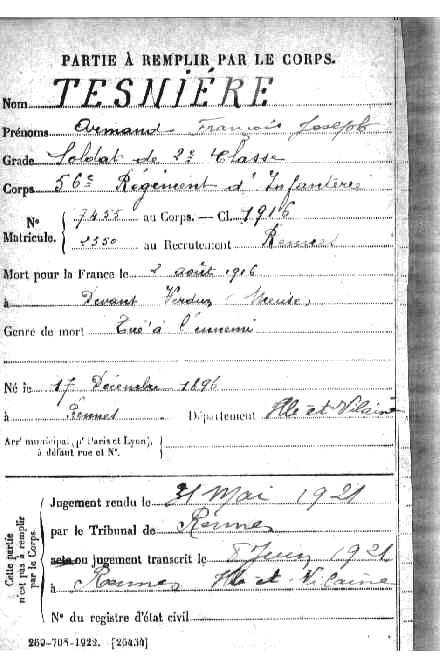 PARTIE À REMPLIR PAR LE CORPS.
Nom TESNIÉRE
Prénoms Armand François Joseph
Grade Soldat de 2e Classe
Corps 56e Régiment d'Infanterie
No Matricule. { 7455 au Corps. — Cl. 1916
2350 au Recrutement Rennes
Mort pour la France le 2 août 1916
à Devant Verdun (Meuse)
Genre de mort Tué à l'ennemi
Né le 17 Décembre 1896
à Rennes Département Ille et Vilaine
Arrt municipal (pr Paris et Lyon),
à défaut rue et No.
Cette partie
n'est pas à remplir
par le Corps.
Jugement rendu le 31 Mai 1921
par le Tribunal de Rennes
acte ou jugement transcrit le Juin 1921
à Rennes Ille et-Vilaine
No du registre d'état civil
269-708-1922. [26434]